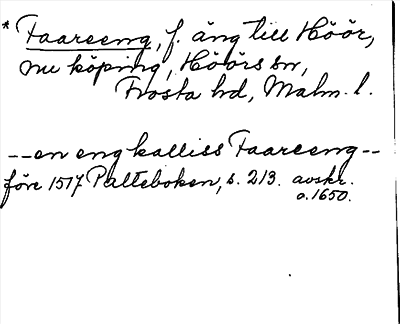 * Faareeng, f. äng till Höör,
nu köping, Höörs sn,
Frosta hd, Malm. l.
-- en eng kalliss Faareeng --
före 1517 Palteboken, s. 213. avskr.
a. 1650.